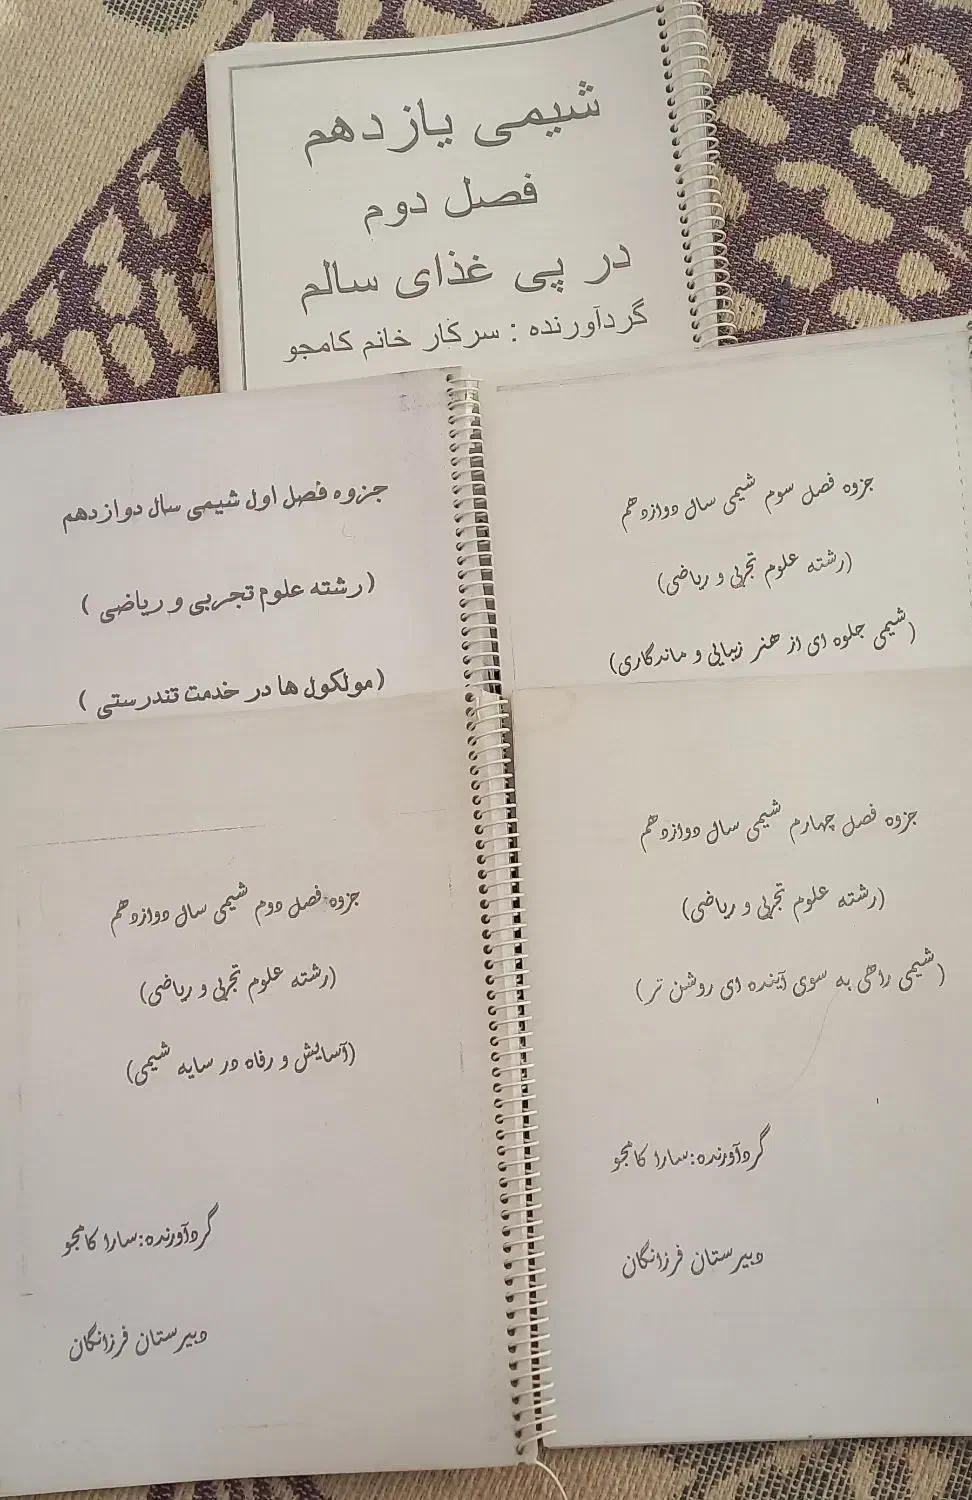 شیمی یازدهم
فصل دوم
در پی غذای سالم
گردآورنده : سرکار خانم کامجو
جزوه فصل سوم شیمی سال دوازدهم
(رشته علوم تجربی و ریاضی)
(شیمی جلوه ای از هنر زیبایی و ماندگاری)
جزوه فصل اول شیمی سال دوازدهم
(رشته علوم تجربی و ریاضی )
(مولکول ها در خدمت تندرستی )
جزوه فصل چهارم شیمی سال دوازدهم
(رشته علوم تجربی و ریاضی)
(شیمی راهی به سوی آینده ای روشن تر)
گردآورنده:سارا کامجو
دبیرستان فرزانگان
جزوه فصل دوم شیمی سال دوازدهم
(رشته علوم تجربی و ریاضی)
(آسایش و رفاه در سایه شیمی)
گردآورنده:سارا کامجو
دبیرستان فرزانگان